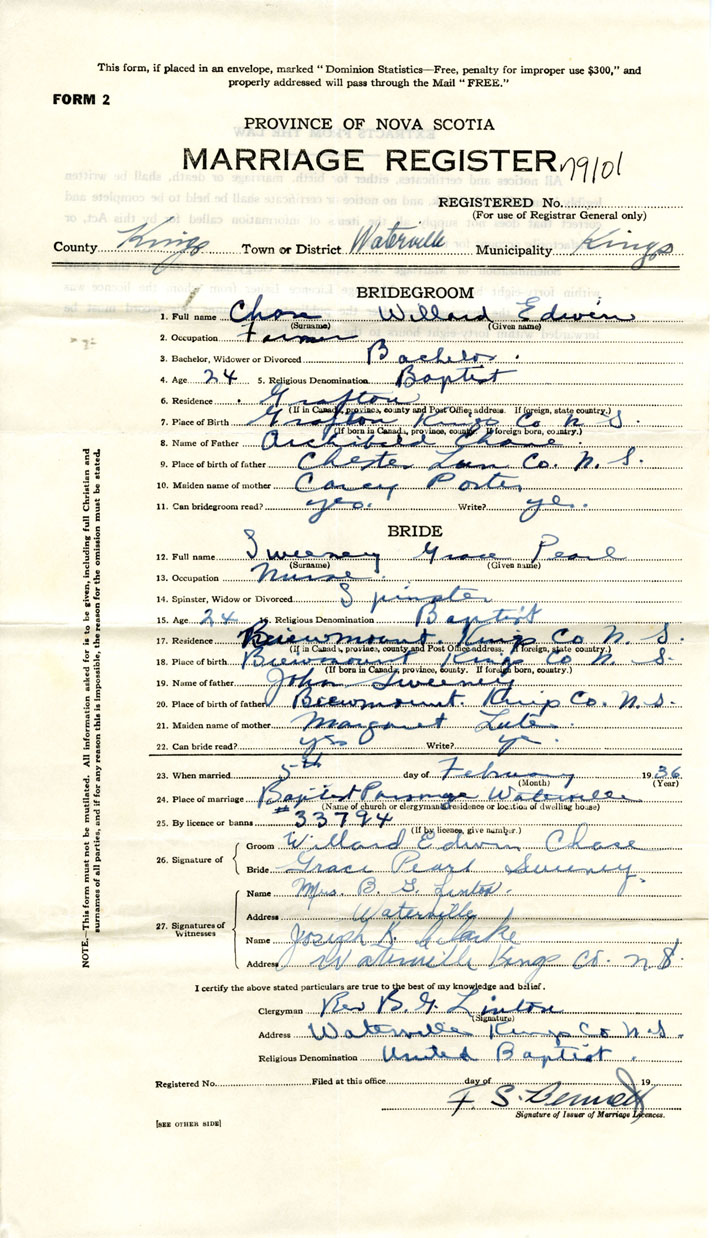 This form, if placed in an envelope, marked "Dominion Statistics—Free, penalty for improper use $300," and
properly addressed will pass through the Mail "FREE."
FORM 2
PROVINCE OF NOVA SCOTIA
MARRIAGE REGISTER 79101
REGISTERED No.
(For use of Registrar General only)
County Kings Town or District Waterville Municipality Kings
BRIDEGROOM
1. Full name Chase Willard Edwin
(Surname) (Given name)
2. Occupation Farmer
3. Bachelor, Widower or Divorced Bachelor.
4. Age 24 5. Religious Denomination Baptist
6. Residence Grafton
(If in Canada, province, county and Post Office address. If foreign, state country.)
7. Place of Birth Grafton Kings Co N S.
(If born in Canada, province, county. If foreign born, country.)
8. Name of Father Archibald Chase
9. Place of birth of father Chester Lun Co. N. S.
10. Maiden name of mother Porter
11. Can bridegroom read? yes. Write? yes.
BRIDE
12. Full name Sweeney Grace Pearl
(Surname) (Given name)
13. Occupation Nurse.
14. Spinster, Widow or Divorced Spinster
15. Age 24 16. Religious Denomination Baptist
17. Residence Kings Co N. S.
(If in Canada, province, county and Post Office address. If foreign, state country.)
18. Place of birth Kings Co N S.
(If born in Canada, province, county. If foreign born, country.)
19. Name of father John Sweeney
20. Place of birth of father Kings Co. N. S.
21. Maiden name of mother Margaret
22. Can bride read? yes Write? yes.
23. When married 5th day of February 1936
(Month) (Year)
24. Place of marriage Baptist Parsonage Waterville
(Name of church or clergyman's residence or location of dwelling house)
25. By licence or banns #33794
(If by licence, give number.)
26. Signature of
Groom Willard Edwin Chase
Bride Grace Pearl Sweeney.
27. Signatures of Witnesses
Name Mrs. B. G. Linton.
Address Waterville
Name Joseph K. Clarke
Address Waterville Kings Co. N S.
I certify the above stated particulars are true to the best of my knowledge and belief.
Clergyman Rev B. G. Linton
(Signature)
Address Waterville Kings Co N. S.
Religious Denomination United Baptist.
Registered No. Filed at this office day of 19
F. S. Bennett
Signature of Issuer of Marriage Licences.
[SEE OTHER SIDE]
NOTE.—This form must not be mutilated. All information asked for is to be given, including full Christian and
surnames of all parties, and if for any reason this is impossible, the reason for the omission must be stated.